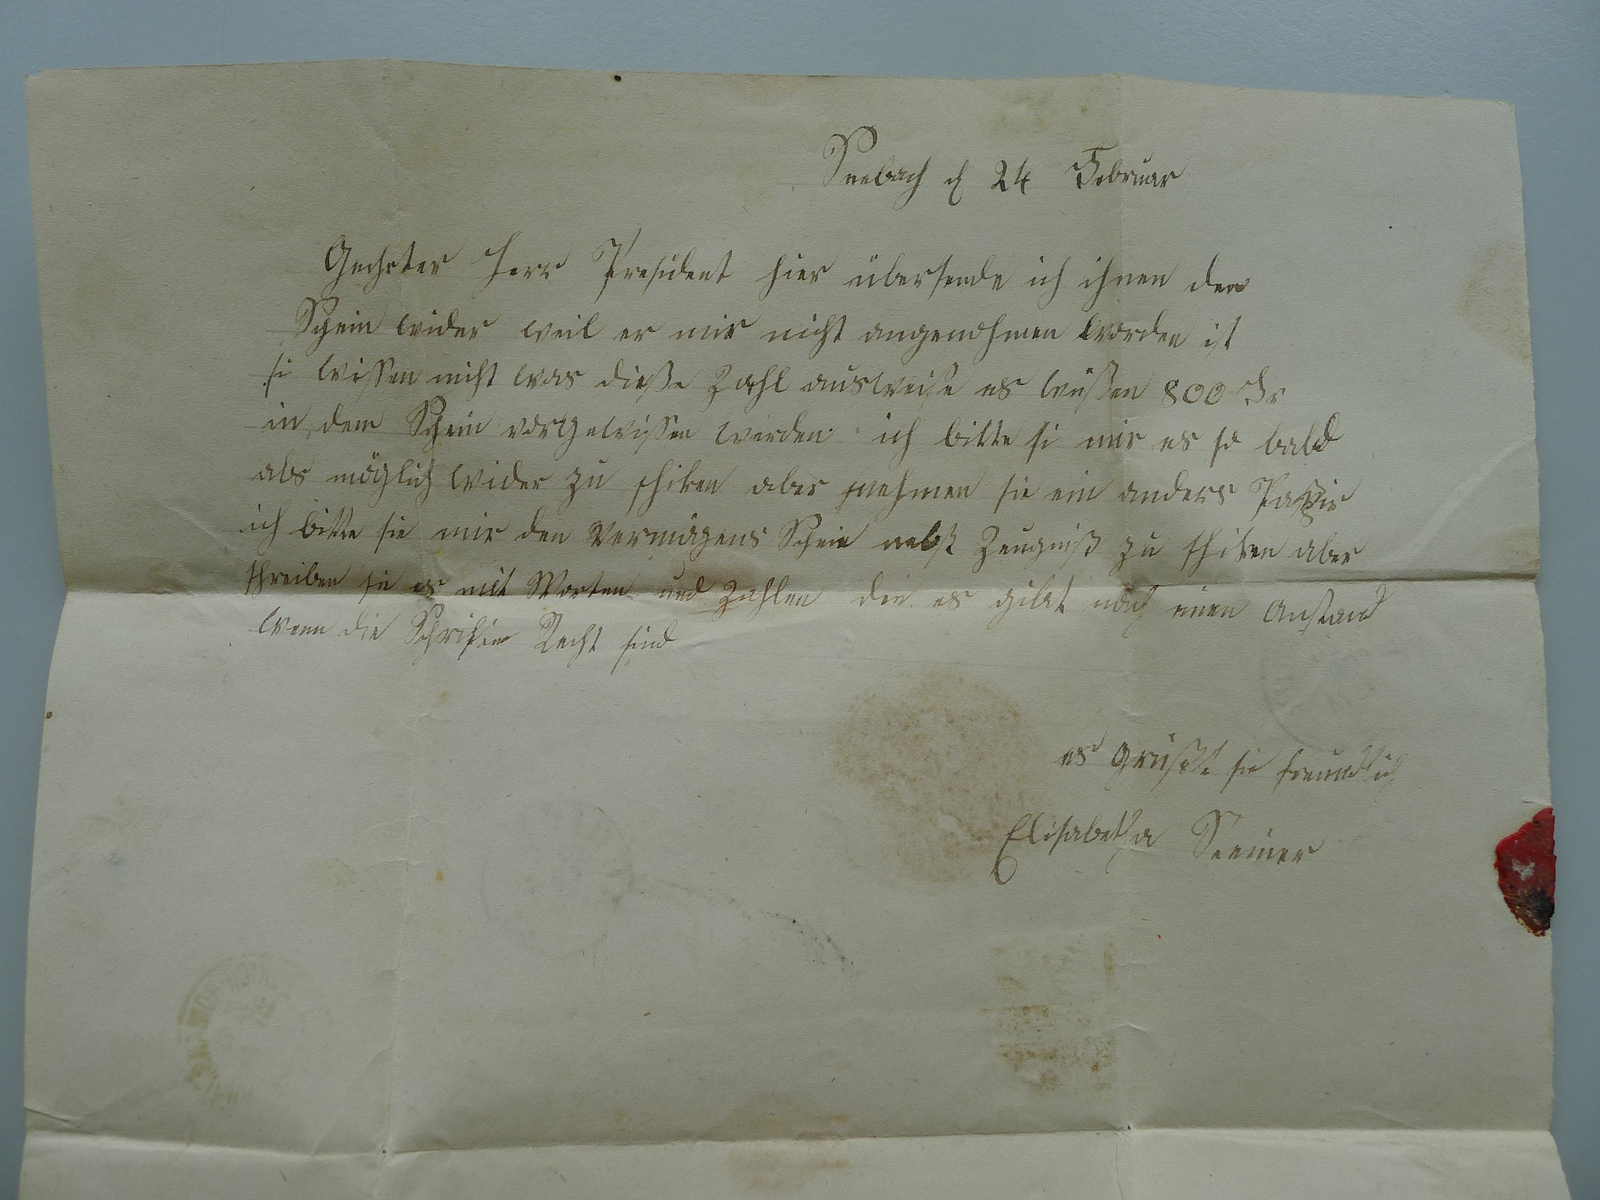 Seebach d 24 Februar
Geehrter Herr President hier übersende ich ihnen den
Schein wider weil er mir nicht angenohmen worden ist
si wissen nicht was dieße Zahl ausweise es müßen 800 Fr
in dem Schein vorgewissen werden ich bitte si mir es so bald
als möglich wider zu schiken aber nehmen sie ein anders Pappir
ich bitte sie mir den Vermögens Schein nebst Zeugniß zu schiken aber
schreiben sie es mit Worten und Zahlen den es gibt noch einen Anstand
wenn die Schriften Recht sind
es grüßt sie freundlich
Elisabetha